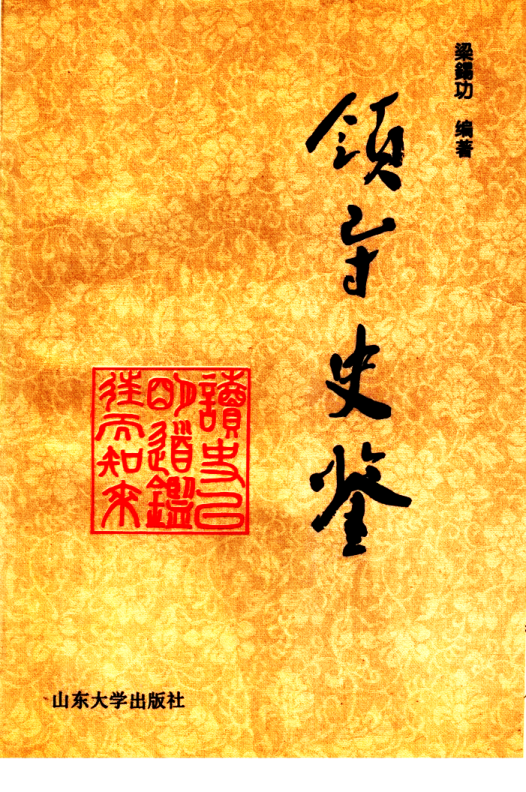 梁錫功 编著
领导史鉴
讀史以
明道鑑
往而知來
山东大学出版社